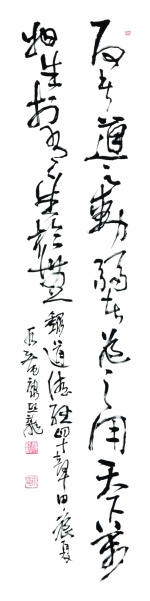 反者道之動弱者道之用天下萬
物生於有々生於無
錄道德經四十章甲辰夏